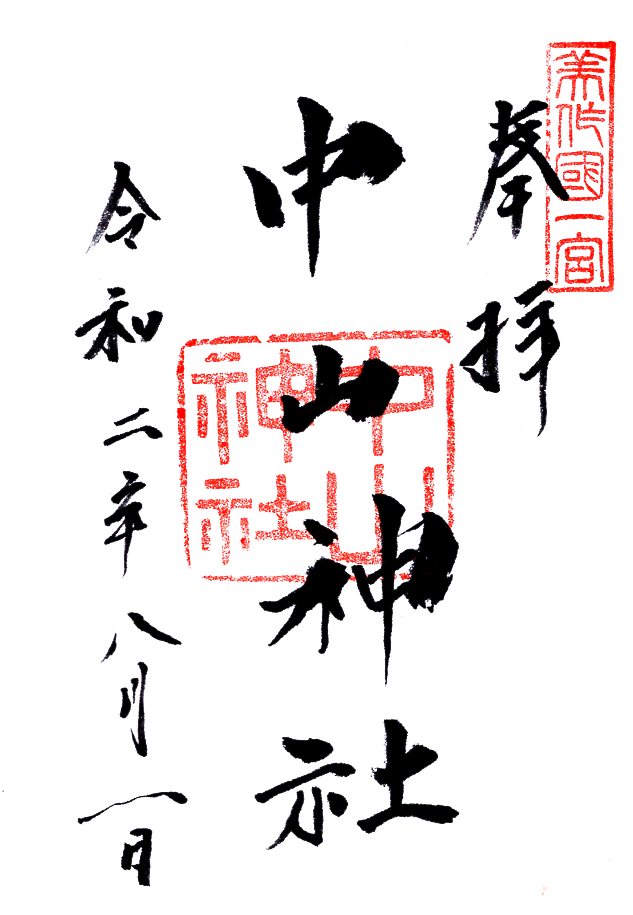 美作國一宮
奉拝
中山神社
中山
神社
令和二年八月一日